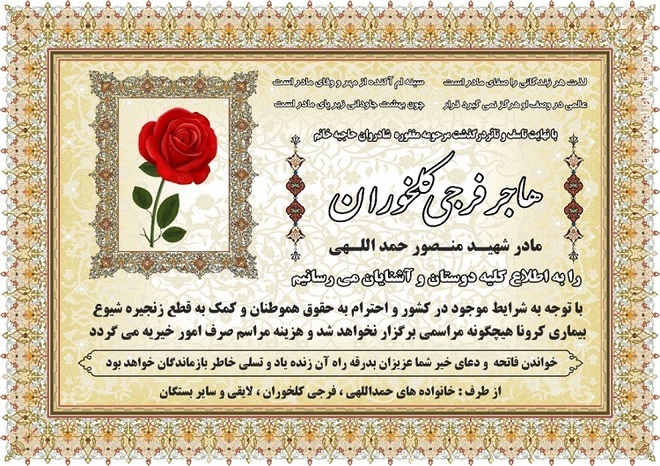 لذت هر زندگانی را صفای مادر است سینه ام آکنده از مهر و وفای مادر است
عالمی در وصف او هرگز نمی گیرد قرار چون بهشت جاودانی زیر پای مادر است
با نهایت تاسف و تاثر درگذشت مرحومه مغفوره شادروان حاجیه خانم
هاجر فرجی کلخوران
مادر شهید منصور حمد اللهی
را به اطلاع کلیه دوستان و آشنایان می رسانیم
با توجه به شرایط موجود در کشور و احترام به حقوق هموطنان و کمک به قطع زنجیره شیوع
بیماری کرونا هیچگونه مراسمی برگزار نخواهد شد و هزینه مراسم صرف امور خیریه می گردد
خواندن فاتحه و دعای خیر شما عزیزان بدرقه راه آن زنده یاد و تسلی خاطر بازماندگان خواهد بود
از طرف : خانواده های حمداللهی ، فرجی کلخوران ، لایقی و سایر بستگان